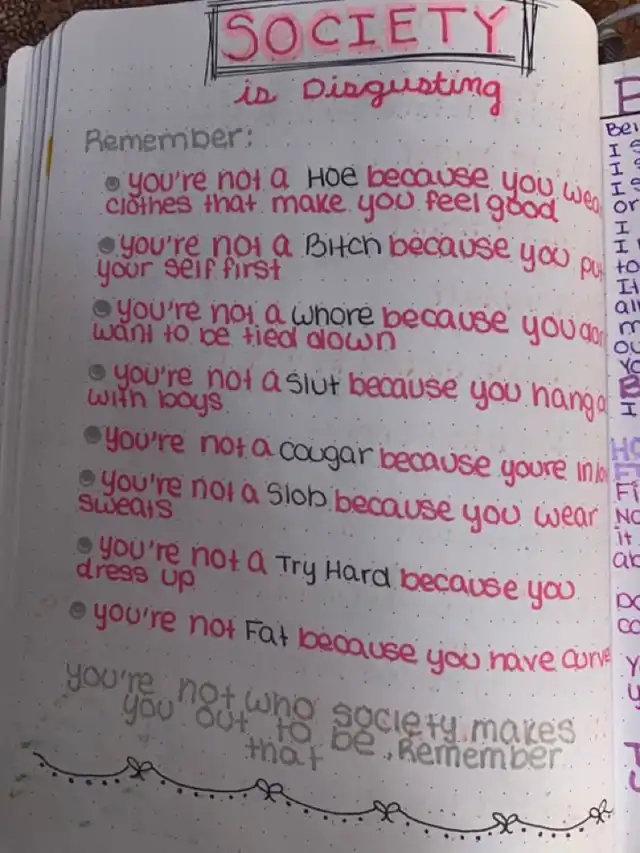 SOCIETY
is Disgusting
Remember:
you're not a HOE because you wea
clothes that make you feel good
you're not a Bitch because you pu
your self first
you're not a whore because you don
want to be tied down
you're not a slut because you hang
with boys
you're not a cougar because youre in lo
you're not a Slob because you wear
sweats
you're not a Try Hard because you
dress up
you're not Fat because you have curve
you're not who society makes
you out to be, Remember
that
Bei
I S
I
I S
or
I
I
to
It
all
m
ou
Yo
I
HO
Fi
No
it
ab
Do
co
Y
y